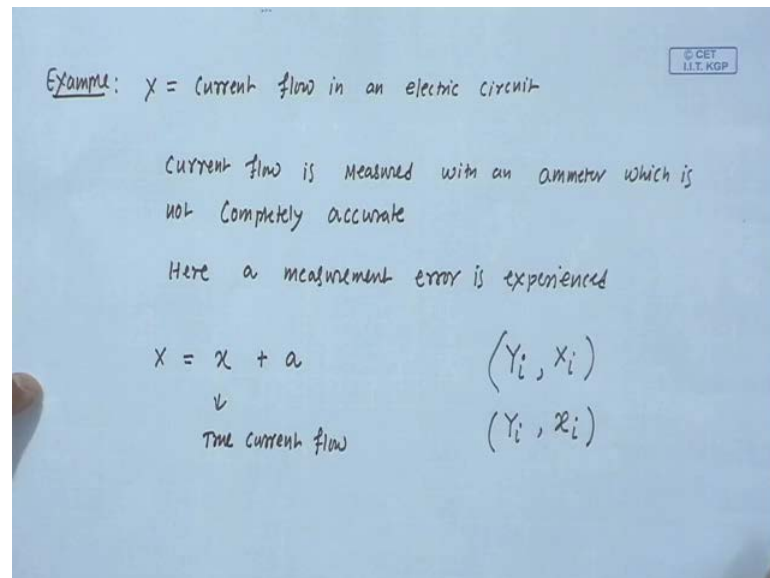 © CET
I.I.T. KGP
Example: X = Current flow in an electric circuit
Current flow is measured with an ammeter which is
not completely accurate
Here a measurement error is experienced
X = x + a (Yᵢ, Xᵢ)
↓
True current flow (Yᵢ, xᵢ)